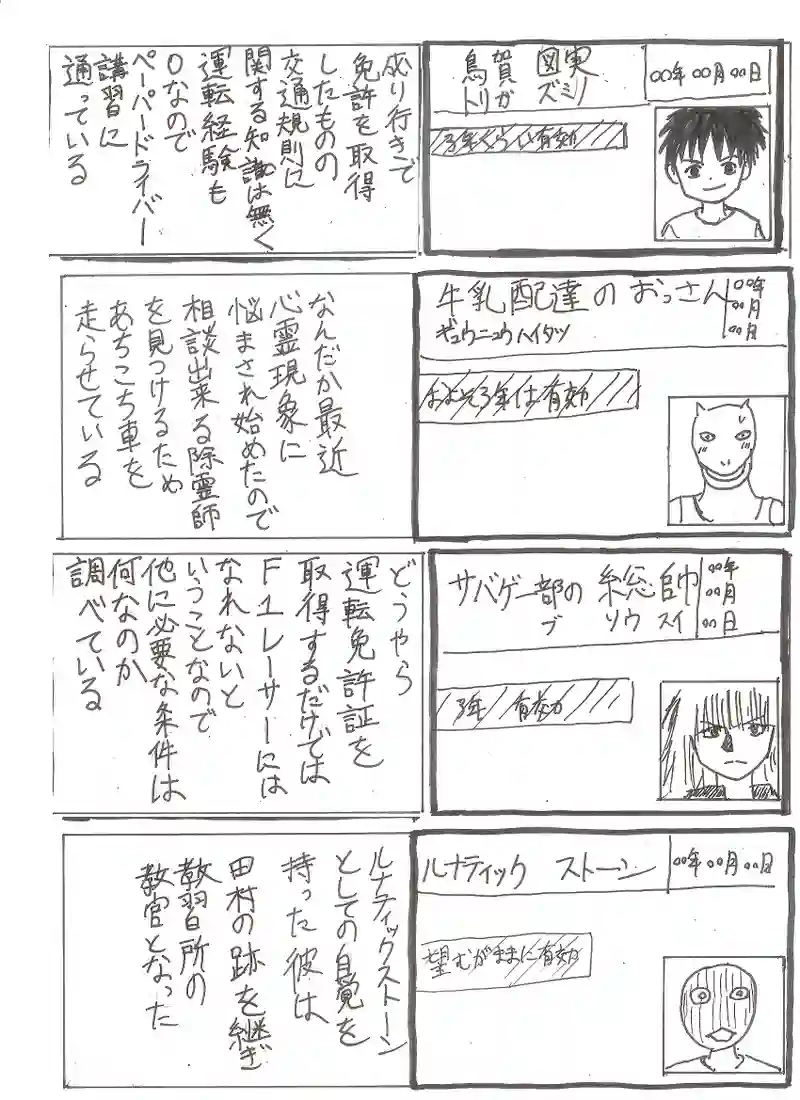 鳥賀 図実
トリガ ズミノ
〇〇年〇〇月〇〇日
3年くらい有効
成り行きで
免許を取得
したものの
交通規則に
関する知識は無く
運転経験も
0なので
ペーパードライバー
講習に
通っている
牛乳配達のおっさん
ギュウニュウハイタツ
〇〇年
〇〇月
〇〇日
およそ3年は有効
なんだか最近
心霊現象に
悩まされ始めたので
相談出来る除霊師
を見つけるため
あちこち車を
走らせている
サバゲー部の総帥
ブ ソウスイ
〇〇年
〇〇月
〇〇日
3年 有効
どうやら
運転免許証を
取得するだけでは
F1レーサーには
なれないと
いうことなので
他に必要な条件は
何なのか
調べている
ルナティック ストーン
〇〇年〇〇月〇〇日
望むがままに有効
ルナティックストーン
としての自覚を
持った彼は
田村の跡を継ぎ
教習所の
教官となった